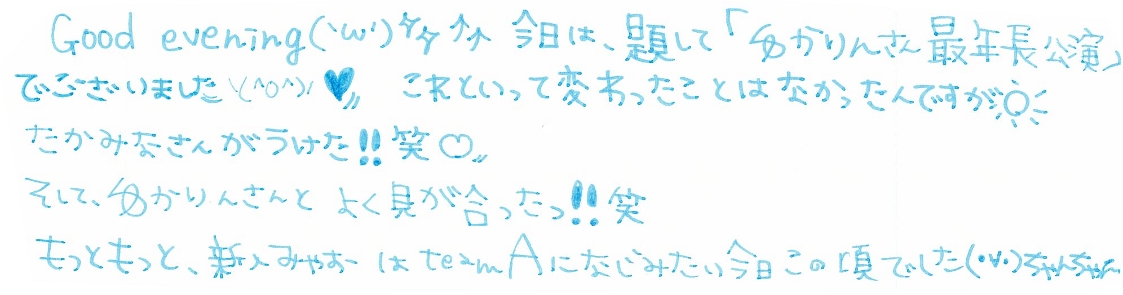 Good evening(`ω')今日は、題して「ゆかりんさん最年長公演」
でございました\(^o^)/♥ これといって変わったことはなかったんですが
たかみなさんがうけた!!笑♡
そして、ゆかりんさんと よく見が合ったっ!!笑
もっともっと、新入みゃおーはteamAになじみたい今日この頃でした(・∀・)ちゃんちゃん